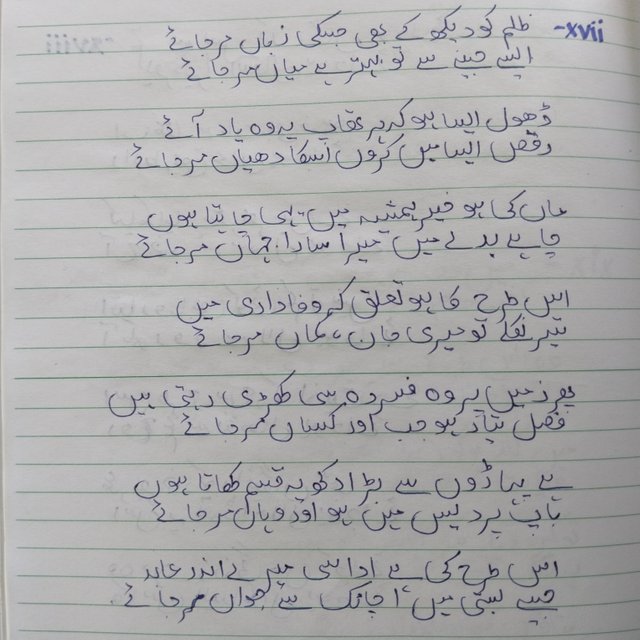 -xvii
ظلم کو دیکھ کے بھی جسکی زباں مر جائے
ایسے جینے سے تو بہتر ہے میاں مر جائے
ڈھول ایسا ہو کہ ہر تھاپ پہ وہ یاد آئے
رقص ایسا میں کروں اسکا دھیاں مر جائے
ماں کی ہو خیر ہمیشہ میں یہی چاہتا ہوں
چاہے بدلے میں میرا سارا جہاں مر جائے
اس طرح کا ہو تعلق کہ وفاداری میں
تیر نکلے تو میری جان، کماں مر جائے
پھر زمیں پر وہ فسردہ سی کھڑی رہتی ہیں
فصل تیار ہو جب اور کساں مر جائے
ہے پہاڑوں سے بڑا دکھ یہ قسم کھاتا ہوں
باپ پردیس میں ہو اور وہاں مر جائے
اس طرح کی ہے اداسی میرے اندر عابد
جیسے بستی میں اچانک سے جواں مر جائے